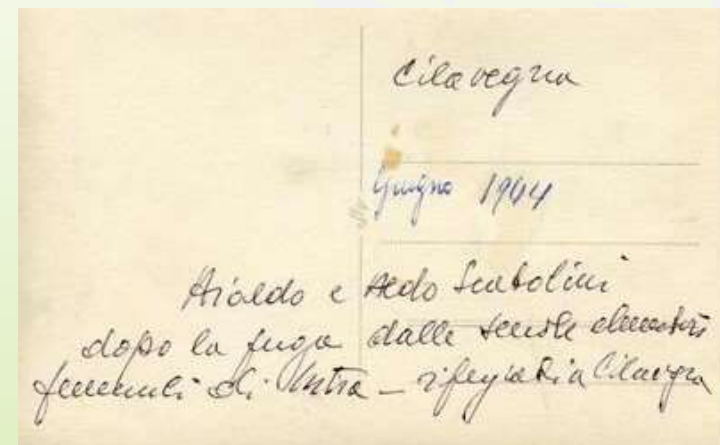 Cilavegna
Giugno 1944
Arialdo e Aldo Scabolini
dopo la fuga dalle scuole elementari
femminili di Intra – rifugiati a Cilavegna